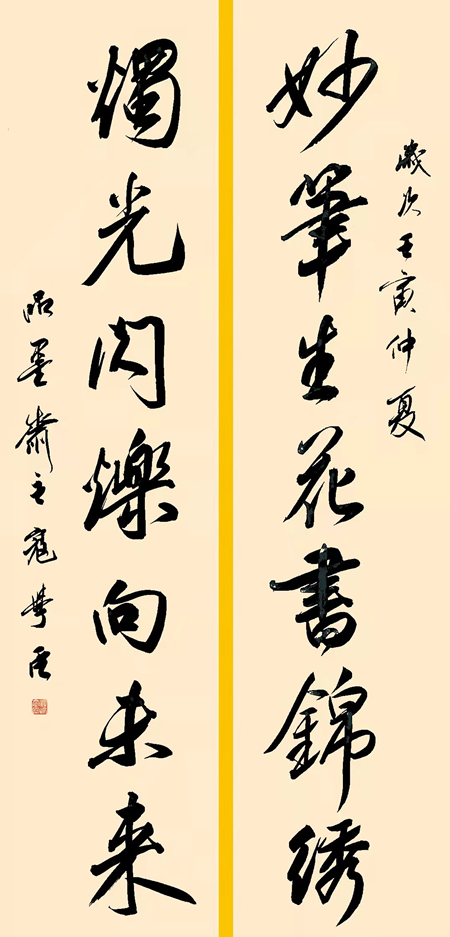 歲次壬寅仲夏
妙筆生花書錦绣
燭光閃爍向未来
品墨齋主寇學臣